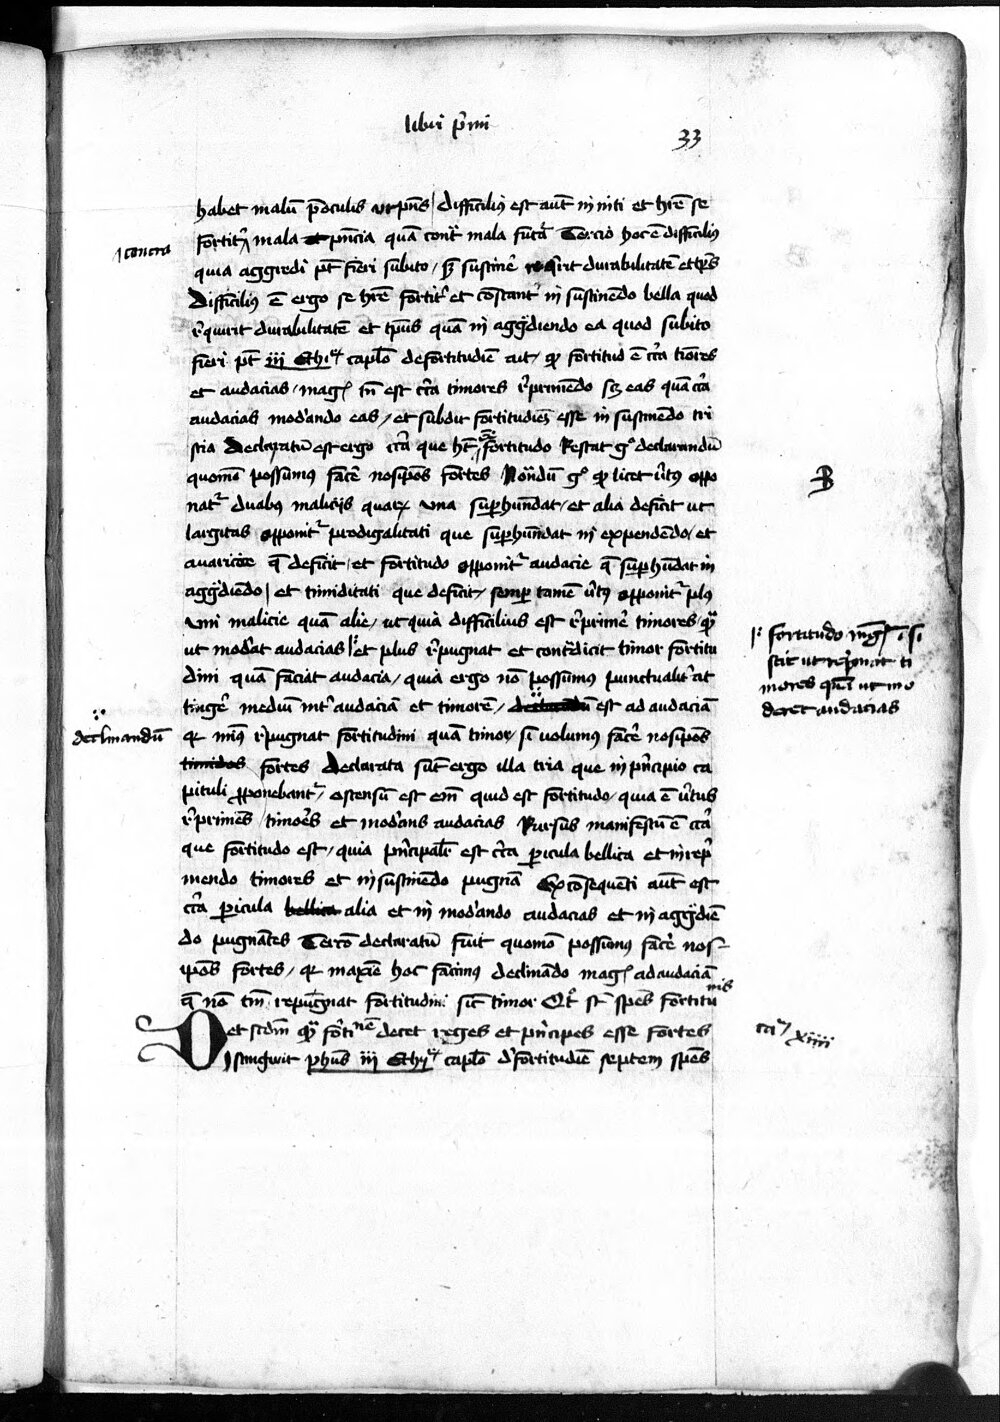 libri p̄mi
33
habet malū p̄ oculis ut pn̄s difficiliꝰ est aūt inniti et hr̄e se
fortit͛ mala pn̄cia quā cont͛ mala fut͛a Tercio hoc ē difficiliꝰ
ꝯtra
quia aggredi pt̄ fieri subito / sꝫ sustinē durabilitatē et tp̄s
Difficiliꝰ ē ergo se hr̄e fortit͛ et cōstant͛ in sustinēdo bella quod
r̄quirit durabilitatē et tp̄us quā in aggrediendo ea quod subito
fieri pt̄ iij Ethi caplo de fortitudīe ait / fortitud ē cc͛a tiōres
et audacias / mag tn̄ est cc͛a timores r̄primēdo sꝫ eas quā cc͛a
audacias mod͛ando eas / et subdit fortitudīeꝫ esse in sustinēdo tri
stia Declaratū est ergo cc͛a que ht̄ fortitudo Restat gͦ declarandū
quomō possumus fac͛e nosip̄os fortes Notādū gͦ licet v͛tus oppo
nat͛ duabus maliciis quarꝝ una suphūndat / et alia deficit ut
largitas opponit͛ prodigalitati que suphūndat in expendēdo / et
avaricie q̄ deficit / et fortitudo opponit͛ audacie q̄ suphūdat in
aggrediēdo / et timiditati que deficit / semp tamē v͛tus opponit͛ plus
uni malicie quā alie / ut quia difficilius est r̄prim͛e timores / qͣ
ut mod͛at audacias / et plus r̄pugnat et contradicit timor fortitu
dini quā faciat audacia / quia ergo nō possumus punctualit͛ at
ting͛e mediū int͛ audaciā et timorē / est ad audaciā
declinandū
min͛ r̄pugnat fortitudini quā timor / si volumus fac͛e nosip̄os
timidos fortes Declarata sūt ergo illa tria que in p̄ncipio ca
pituli ꝓponebant͛ / ostensū est em̄ quid est fortitudo / quia ē v͛tus
r̄primēs timores et mod͛ans audacias Rursus manifestū ē cc͛a
que fortitudo est / quia p̄ncipalr̄ est cc͛a picula bellica et in rep͛
mendo timores et in sustinēdo pugnā Ex cōsequēti aūt est
cc͛a picula bellica alia et in mod͛ando audacias et in aggrediē
do pugnātes Tercō declaratū fuit quomō possumus fac͛e nos
ip̄os fortes / maxīe hoc facimus declinādo mag ad audaciā
q̄ nō tm̄ repugnat fortitudini sic͛ timor Qt͛ st̄ sp̄es fortitu
nis
et scdm̄ qͣ forti nē decet reges et p̄ncipes esse fortes
Distinguit phus iij Ethi caplo d͛ fortitudīe septem sp̄es
fortitudo mag si
stit ut rep̄mat ti
mores quā ut mo
deret audacias
ca xiiii